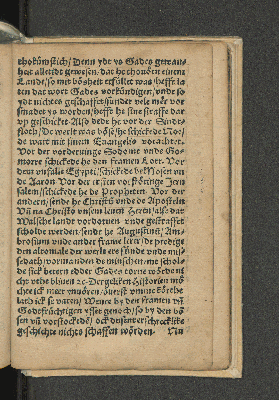 thokümstich/ Denn ydt ys Gades gewan-
heit alletidt gewesen/ dat he thouörn einem
Lande/ so mit bößheit erfüllet was/ hefft la-
ten dat wort Gades vorkündigen/ vnde so
ydt nichtes geschaffet/ sünder vele mer vor
smadet ys worden/ hefft he sine straffe dar
vp geschicket. Also dede he vor der Sindt-
floth/ De werlt was böse/ he schickede Noe/
de wart mit sinem Euangelio vorachtet.
Vor der vorderinge Sodome vnde Go-
morre schickede he den framen Lott. Vor
dem vnfalle Egypti/ schickede he Mosen vn
de Aaron. Vor der ersten vorstöringe Jeru
salem/ schickede he de Propheten. Vor der
andern/ sende he Christū vnde de Apostoln
Vn na Christo vnsem leuen Heren/ als dat
Walsche landt vordoruen vnde gestraffet
scholde werden/ sende he Augustinū/ Am-
brosium vnde ander frame lerer/ de predige
den altomale der werlt ere sünde vnde mis-
sedadt/ vormanden de minschen/ me scholde
sick betern edder Gades torne wörde
nicht vthe bliuen 2c. Dergeliken Historien mö
chte ick meer
latē ick se varen/ Wente by den framen vñ
Godtfrüchtigen ysset genoch/ so by den bö
sen vñ vorstockedē/ ock dusent erschrecklike
geschichte nichts schaffen wörden. Vn